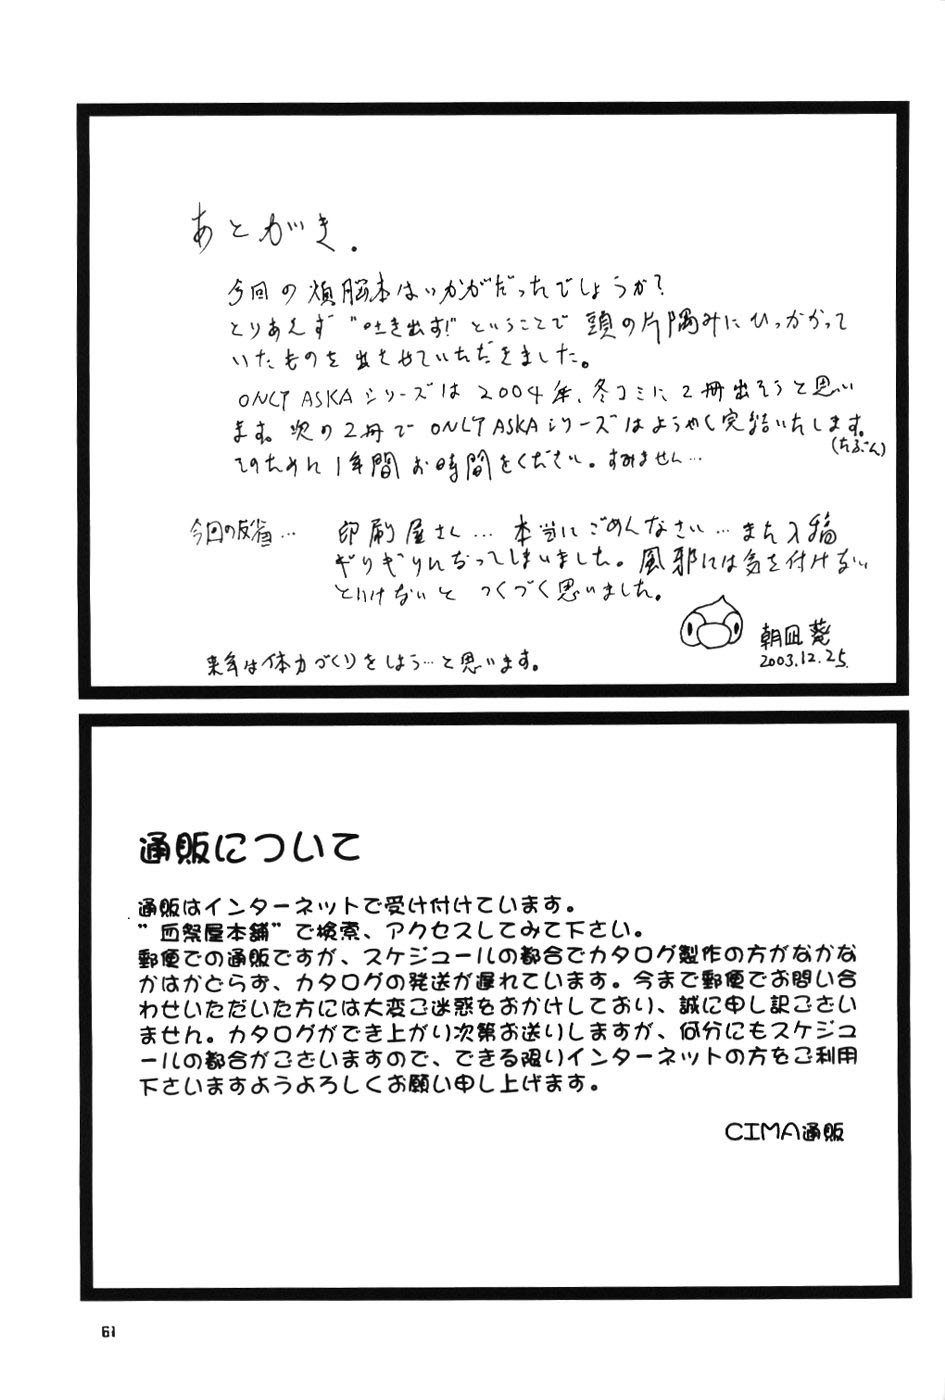 あとがき.
今回の煩脳本はいかがだったでしょうか?
とりあえず"吐き出す!"ということで頭の片隅みにひっかかって
いたものを出させていただきました。
ONLY ASKAシリーズは2004年、冬コミに2冊出そうと思い
ます。次の2冊でONLY ASKAシリーズはようやく完結いたします。
(たぶん)
そのために1年間お時間をください。すみません…
今回の反省… 印刷屋さん…本当にごめんなさい…また入稿
ギリギリになってしまいました。風邪には気を付けない
といけないと つくづく思いました。
朝凪 葵
2003.12.25.
来年は体力づくりをしよう…と思います。
通販について
通販はインターネットで受け付けています。
"匠祭屋本舗"で検索、アクセスしてみて下さい。
郵便での通販ですが、スケジュールの都合でカタログ製作の方がなかな
かはかどらず、カタログの発送が遅れています。今まで郵便でお問い合
わせいただいた方には大変ご迷惑をおかけしており、誠に申し訳ござい
ません。カタログができ上がり次第お送りしますが、何分にもスケジュ
ールの都合がございますので、できる限りインターネットの方をご利用
下さいますようよろしくお願い申し上げます。
CIMA通販
61